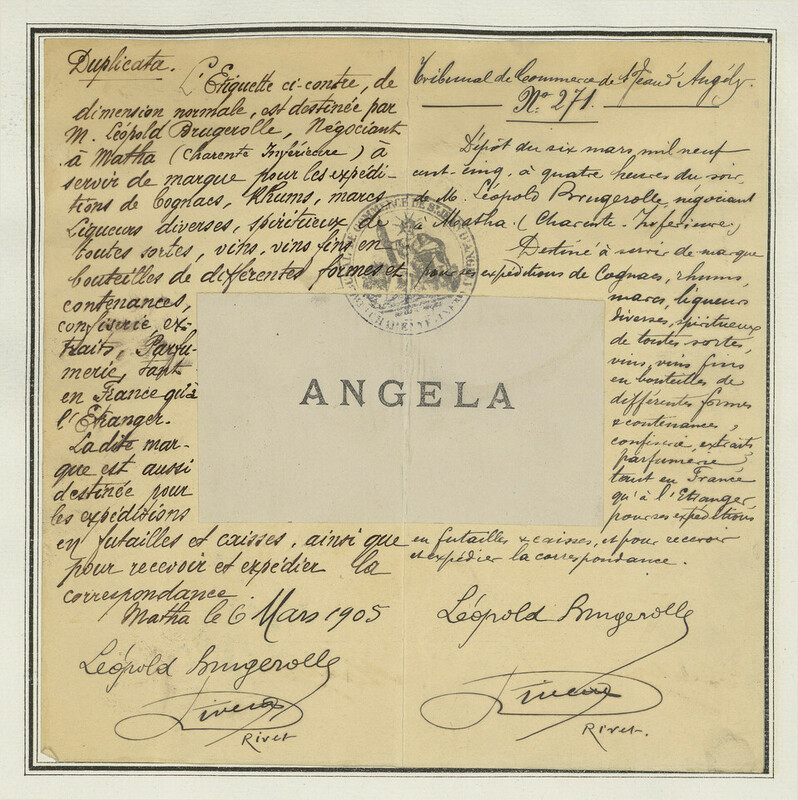 Duplicata.
L'Etiquette ci-contre, de
dimension normale, est destinée par
M. Léopold Brugerolle, Négociant
à Matha (Charente Inférieure) à
servir de marque pour les expédi-
tions de Cognacs, Rhums, marcs
Liqueurs diverses, spiritueux de
toutes sortes, vins, vins fins en
bouteilles de différentes formes et
contenances,
confiserie, ex-
traits, Parfu-
merie, tant
en France qu'à
l'Etranger.
La dite mar-
que est aussi
destinée pour
les expéditions
en futailles et caisses, ainsi que
pour recevoir et expédier la
correspondance.
Matha le 6 Mars 1905
Léopold Brugerolle
Rivet
Tribunal de Commerce de St Jean d'Angély.
No. 271.
Dépôt du six mars mil neuf
cent-cinq, à quatre heures du soir,
de M. Léopold Brugerolle, négociant
à Matha. (Charente-Inférieure.)
Destiné à servir de marque
pour ses expéditions de Cognacs, rhums,
marcs, liqueurs
diverses, spiritueux
de toutes sortes,
vins, vins fins
en bouteilles de
différentes formes
& contenances,
confiserie, extraits,
parfumerie,
tant en France
qu'à l'Etranger,
pour ses expéditions
en futailles & caisses, et pour recevoir
et expédier la correspondance.
Léopold Brugerolle
Rivet.
ANGELA